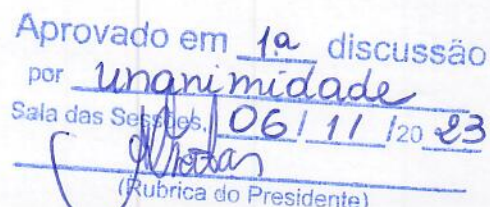 Aprovado em 1a discussão
por unanimidade
Sala das Sessões, 06/11/2023
(Rubrica do Presidente)